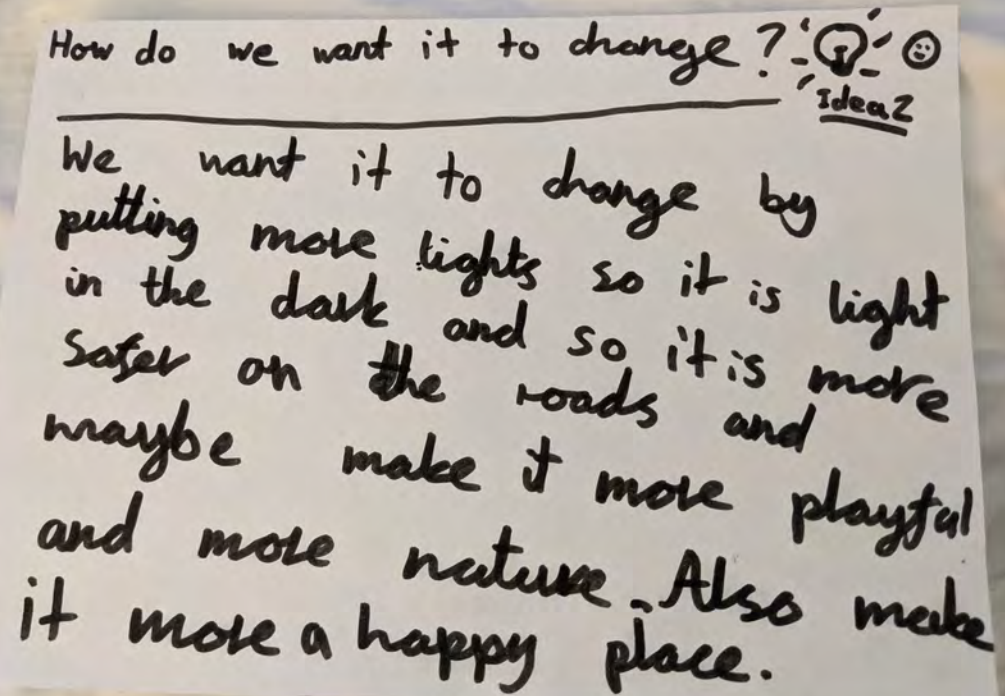 How do we want it to change?
Idea 2
We want it to change by
putting more lights so it is light
in the dark and so it is more
safer on the roads and
maybe make it more playful
and more nature. Also make
it more a happy place.